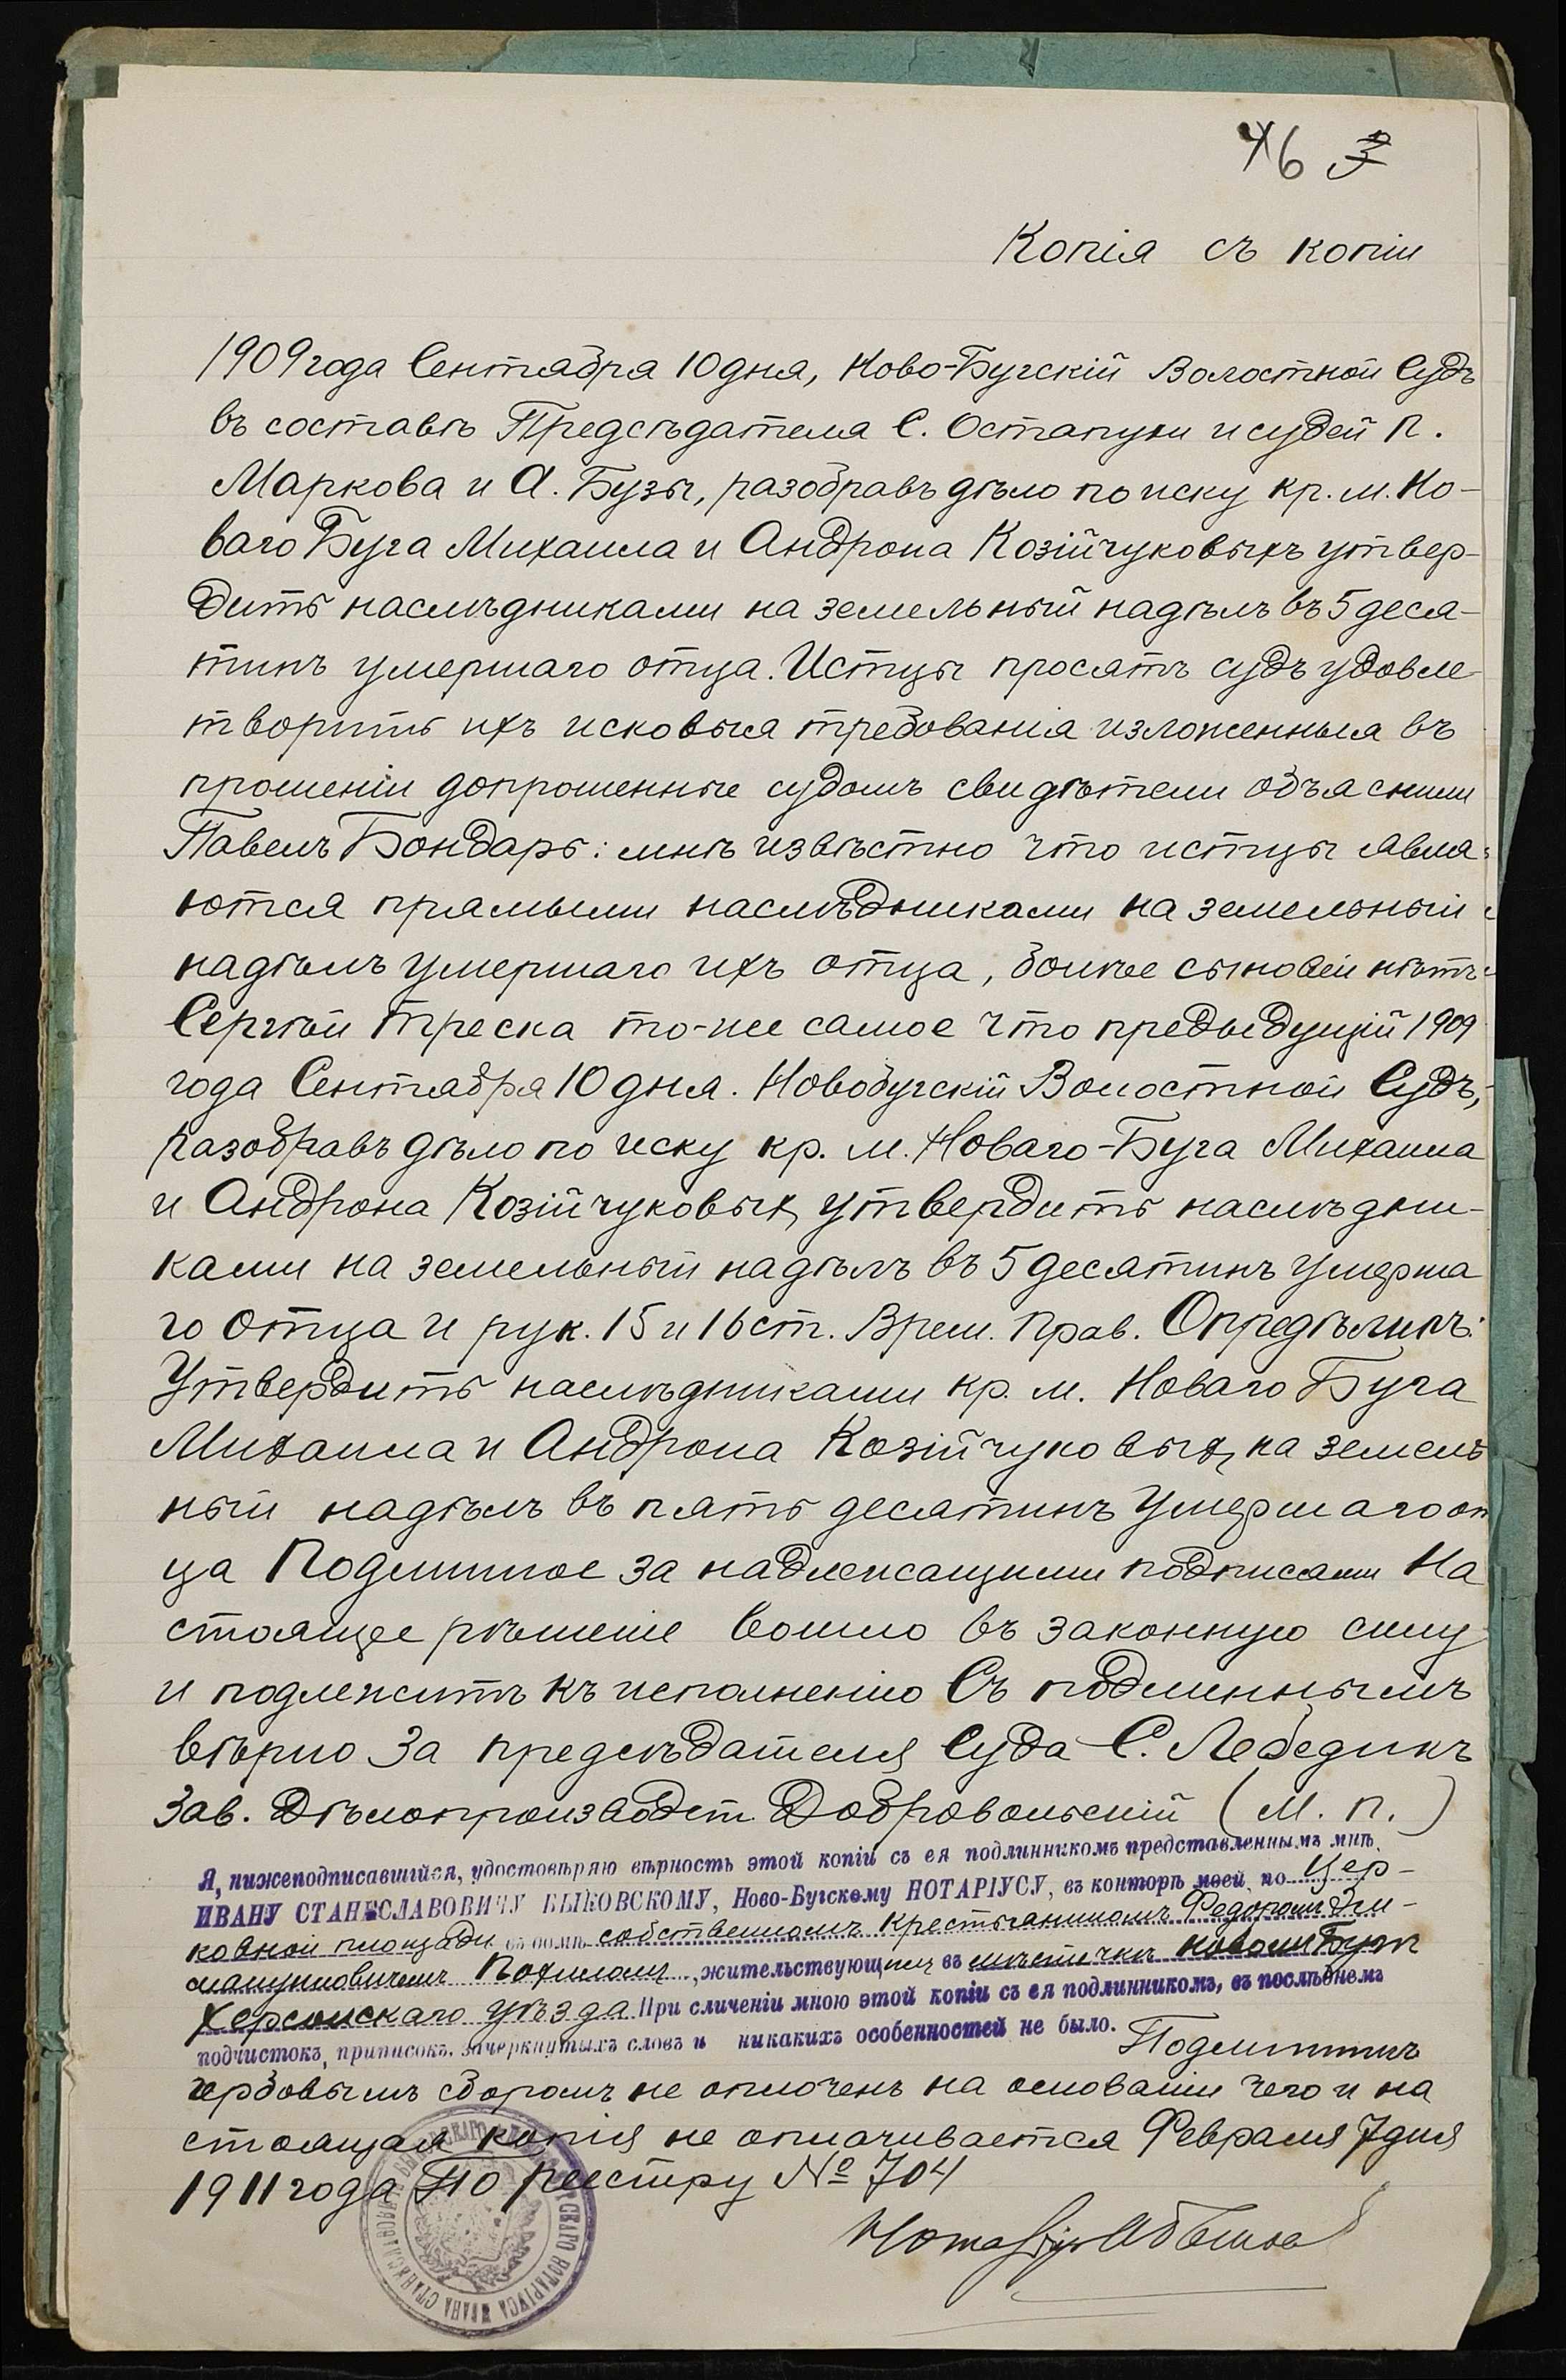 46 3
Копія съ копіи
1909 года Сентября 10 дня, Ново-Бугскій Волостной Судъ
въ составѣ Предсѣдателя С. Остапухи и судей П.
Маркова и А. Бузы, разобравъ дѣло по иску кр. м. Но-
ваго Буга Михаила и Андрона Козійчуковыхъ утвер-
дить наслѣдниками на земельный надѣлъ въ 5 деся-
тинъ умершаго отца. Истцы просятъ судъ удовле
творить ихъ исковыя требованія изложенныя въ
прошеніи допрошенные судомъ свидѣтели объяснили
Павелъ Бондарь: мнѣ извѣстно что истцы явля-
ются прямыми наслѣдниками на земельный
надѣлъ умершаго ихъ отца, болѣе сыновей нѣтъ
Сергѣй Треска то-же самое что предыдущій 1909
года Сентября 10 дня. Новобугскій Волостной Судъ,
разобравъ дѣло по иску кр. м. Новаго-Буга Михаила
и Андрона Козійчуковых, утвердить наслѣдни-
ками на земельный надѣлъ въ 5 десятинъ умерша
го отца и рук. 15 и 16 ст. Врем. Прав. Опредѣлилъ:
Утвердить наслѣдниками кр. м. Новаго Буга
Михаила и Андрона Козійчуковых, на земель
ный надѣлъ въ пять десятинъ умершаго от
ца Подлинное за надлежащими подписами На
стоящее рѣшеніе вошло въ законную силу
и подлежитъ къ исполненію Съ подлиннымъ
вѣрно За предсѣдателя Суда С. Лебединъ
Зав. Дѣлопроизводст. Добровольскій (М. п.)
Я, нижеподписавшійся, удостовѣряю вѣрность этой копіи съ ея подлинникомъ представленнымъ мнѣ
ИВАНУ СТАНИСЛАВОВИЧУ БЫКОВСКОМУ, Ново-Бугскому НОТАРІУСУ, въ конторѣ моей, по Цер-
ковной площади въ домѣ собственномъ крестьяниномъ Федоромъ
Похиломъ, жительствующимъ въ мѣстечкѣ Новомъ Бугѣ
Херсонскаго уѣзда При сличеніи мною этой копіи съ ея подлинникомъ, въ послѣднемъ
подчистокъ, приписокъ, зачеркнутыхъ словъ и никакихъ особенностей не было. Подлинникъ
гербовымъ сборомъ не оплоченъ на основаніи чего и на
стоящая копія не оплачивается Февраля 7 дня
1911 года По реестру № 704
Нотаріусъ